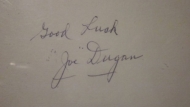 Good Luck
"Joe" Dugan